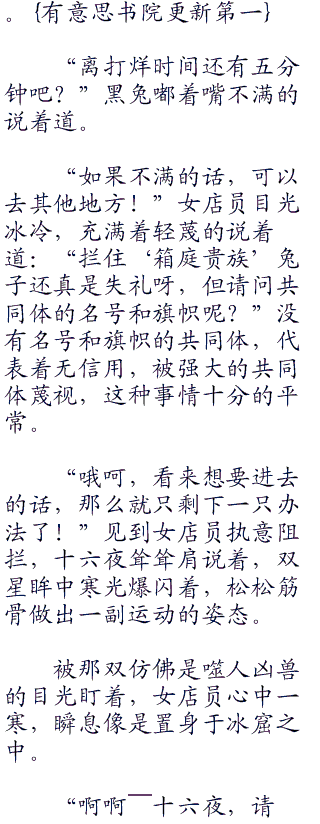 。{有意思书院更新第一}
“离打烊时间还有五分
钟吧？”黑兔嘟着嘴不满的
说着道。
“如果不满的话，可以
去其他地方！”女店员目光
冰冷，充满着轻蔑的说着
道：“拦住‘箱庭贵族’兔
子还真是失礼呀，但请问共
同体的名号和旗帜呢？”没
有名号和旗帜的共同体，代
表着无信用，被强大的共同
体蔑视，这种事情十分的平
常。
“哦呵，看来想要进去
的话，那么就只剩下一只办
法了！”见到女店员执意阻
拦，十六夜耸耸肩说着，双
星眸中寒光爆闪着，松松筋
骨做出一副运动的姿态。
被那双仿佛是噬人凶兽
的目光盯着，女店员心中一
寒，瞬息像是置身于冰窟之
中。
“啊啊￣十六夜，请